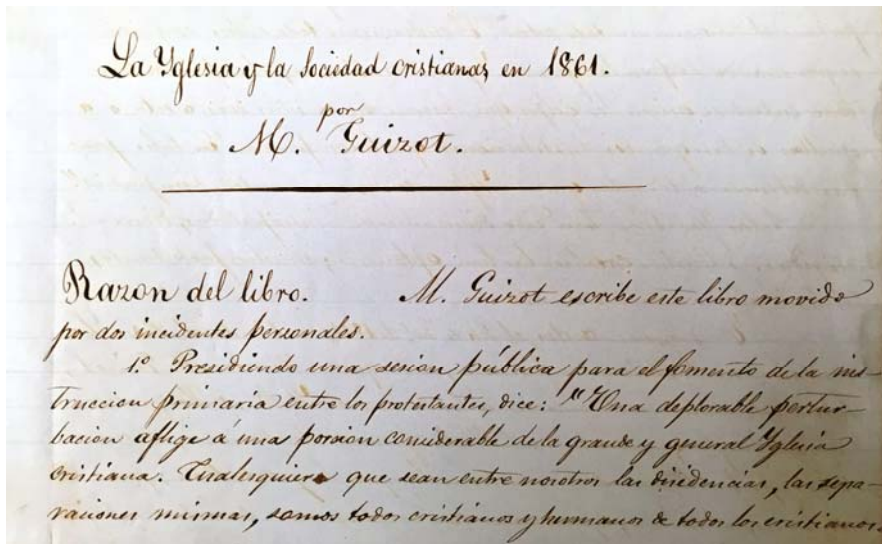 La Yglesia y la Sociedad cristianas en 1861.
por
M. Guizot.
Razon del libro. M. Guizot escribe este libro movido
por dos incidentes personales.
1.º Presidiendo una sesion pública para el fomento de la ins-
truccion primaria entre los protestantes, dice: "Una deplorable pertur-
bacion aflige á una porsion considerable de la grande y general Yglesia
cristiana. Cualesquiera que sean entre nosotros las disidencias, las sepa-
raciones mismas, somos todos cristianos y hermanos de todos los cristianos.